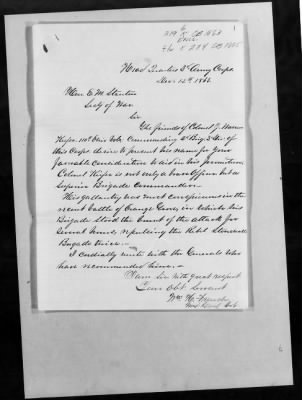 Head Quarters 3d Army Corps
Dec. 12th 1863
Hon E. M. Stanton
Secty of War
Sir
The friends of Colonel J. Warren
Keifer 110th Ohio Vols. Commanding 2d Brig. 3d Div of
this Corps desire to present his name for your
favorable consideration to aid in his promotion
Colonel Keifer is not only a brave Officer but a
superior Brigade Commander.
His gallantry was most conspicuous in the
recent battle of Orange Grove, in which his
Brigade stood the brunt of the attack for
several hours, repulsing the Rebel Stonewall
Brigade twice.
I cordially unite with the Generals who
have recommended him.
I am Sir with great respect
Your Obt Servant
Wm H. French
Maj Genl Vols